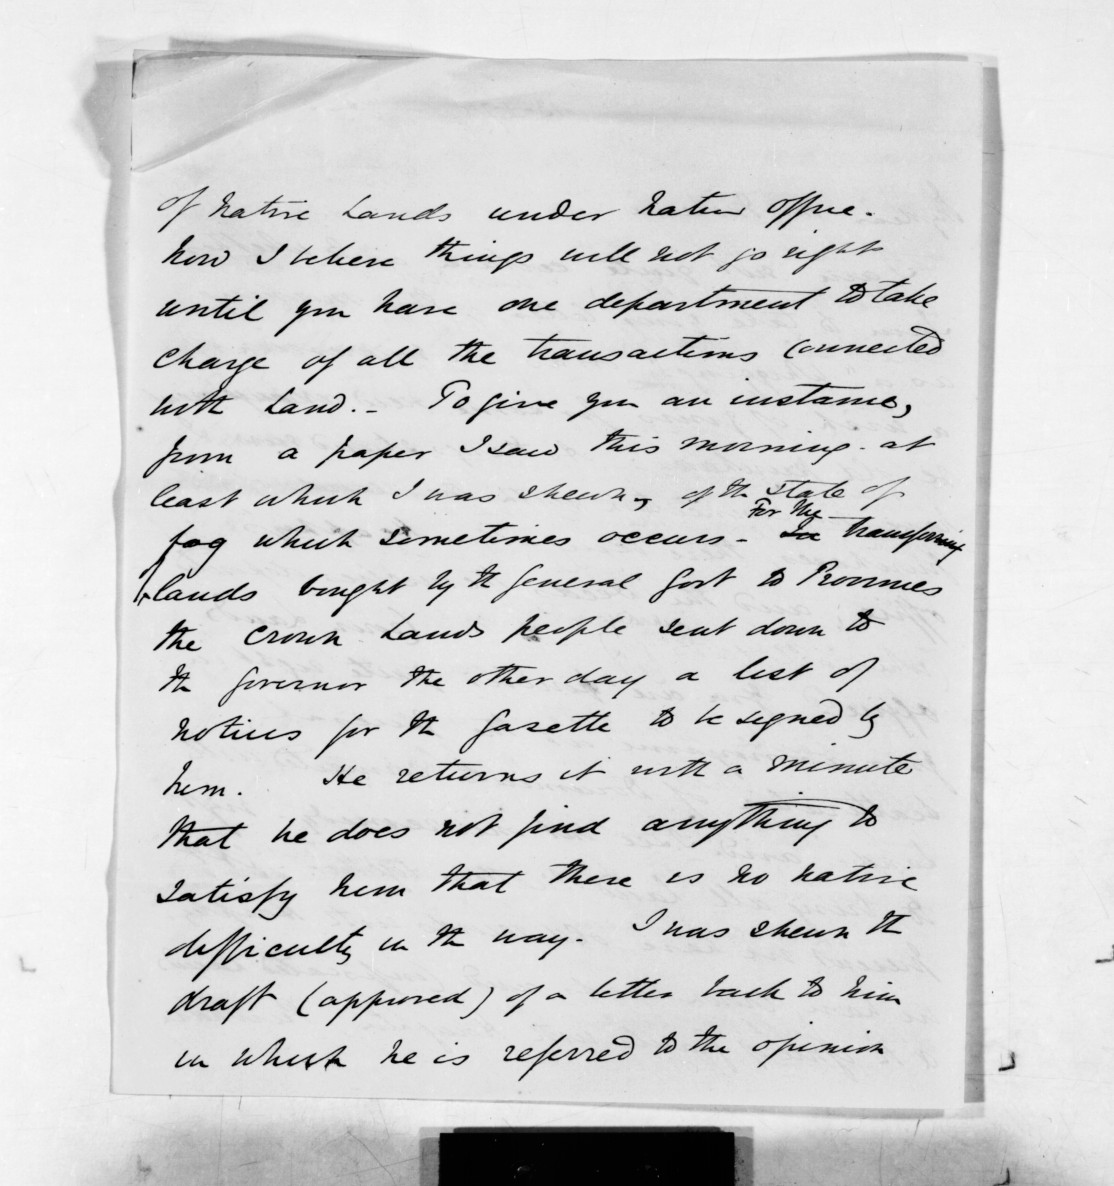 of Native Lands under Native Office.
Now I believe things will not go right
until you have one department to take
charge of all the transactions connected
with Land. - To give you an instance,
from a paper I saw this morning - at
least which I was shewn, of the state of
fog which sometimes occurs - For the transferring
lands bought by the General Govt to Provinces
the Crown Lands people sent down to
the Governor the other day a list of
notices for the Gazette to be signed by
him. He returns it with a minute
that he does not find anything to
satisfy him that there is no native
difficulty in the way. I was shewn the
draft (approved) of a letter back to him
in which he is referred to the opinion